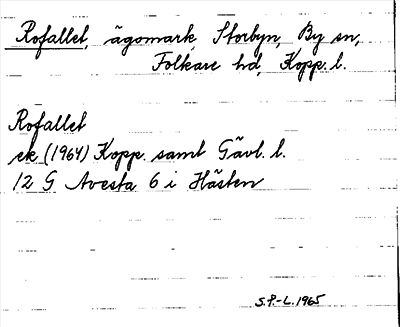 Rofallet, ägomark, Storbyn, By sn,
Folkare hd, Kopp. l.
Rofallet
ek (1964) Kopp. samt Gävl. l.
12 G Avesta 6 i Hästen
S.P.-L. 1965